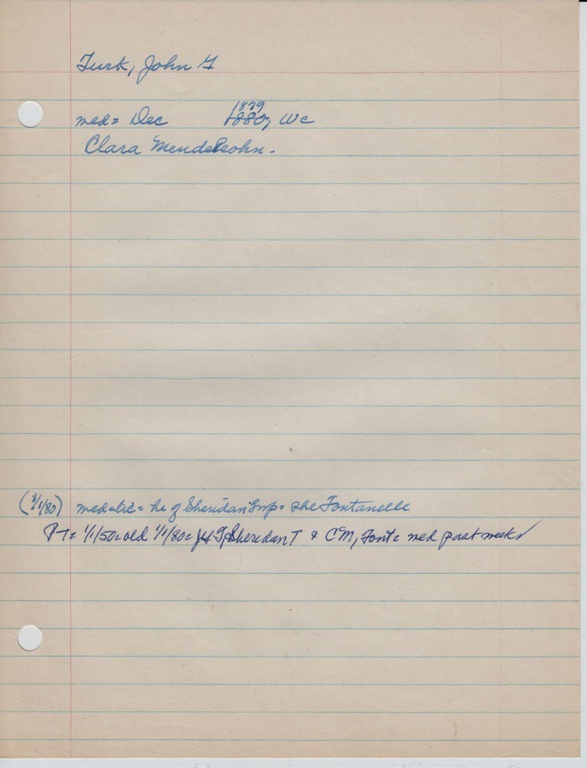 Turk, John G
med = Dec 1879 1880, WC
Clara Mendelsohn.
(1/1/80) med lic = he of Sheridan Twp = she Fontanelle
PT = 1/1/50 = old 1/1/80 = J G T, Sheridan T & CM, Font = med past week